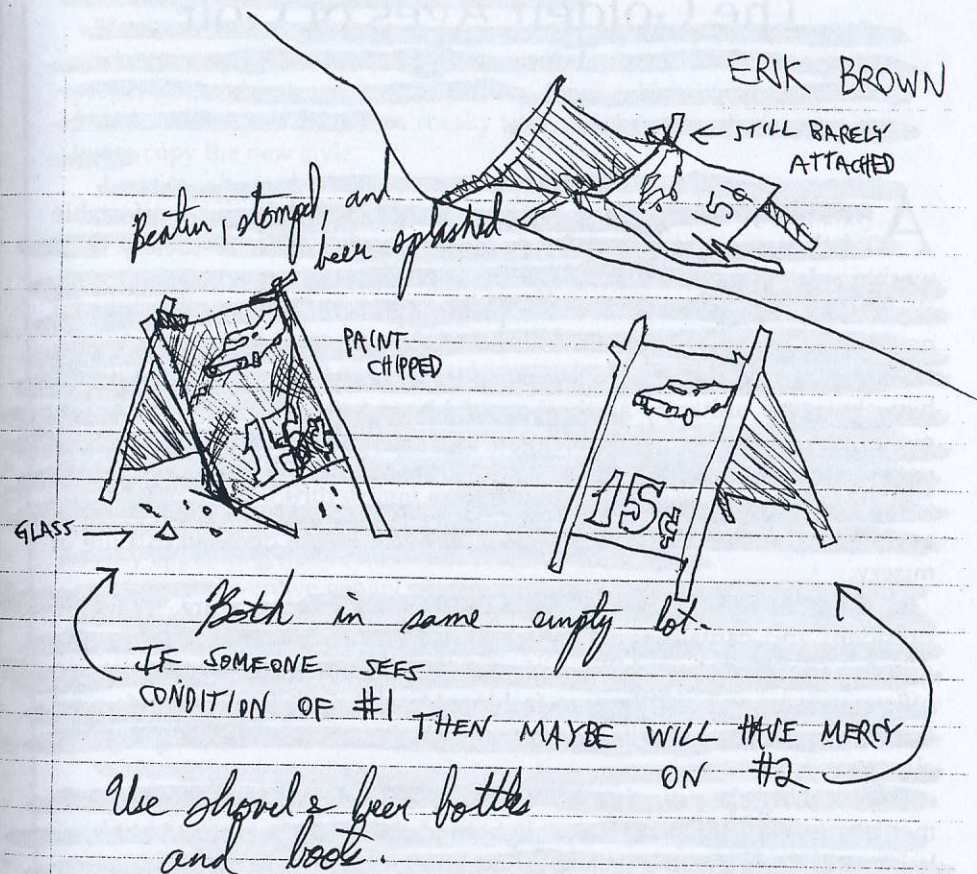 ERIK BROWN
← STILL BARELY
ATTACHED
5¢
Beaten, stomped, and
beer splashed
PAINT
CHIPPED
15¢
15¢
GLASS →
Both in same empty lot.
IF SOMEONE SEES
CONDITION OF #1
THEN MAYBE WILL HAVE MERCY
ON #2
Use shovel & beer bottles
and boots.